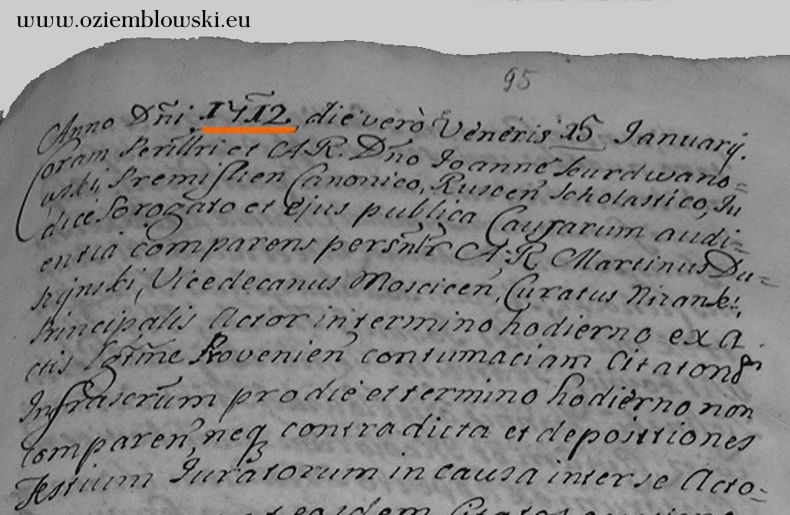 www.oziemblowski.eu
95
Anno Dñi 1712. die verò Veneris 15 Januarij.
Coram Perillri et A.R. Dño Joanne Scurdwano=
uskij Premislien Canonico, Ruscen Scholastico, Ju
dice Sorogato et Ejus publica Causarum audi=
entia comparens persnlr A.R. Martinus Du=
szynski, Vicedecanus Moscicen, Curatus Nizanki.,
Principalis Actor in termino hodierno ex A
ctis Provenien contumaciam Citaton
Infrascrum pro die et termino hodierno non
comparen, neq contradicta et depositiones
Testium Juratorum in causa inter se Acto=
et easdem Citatos